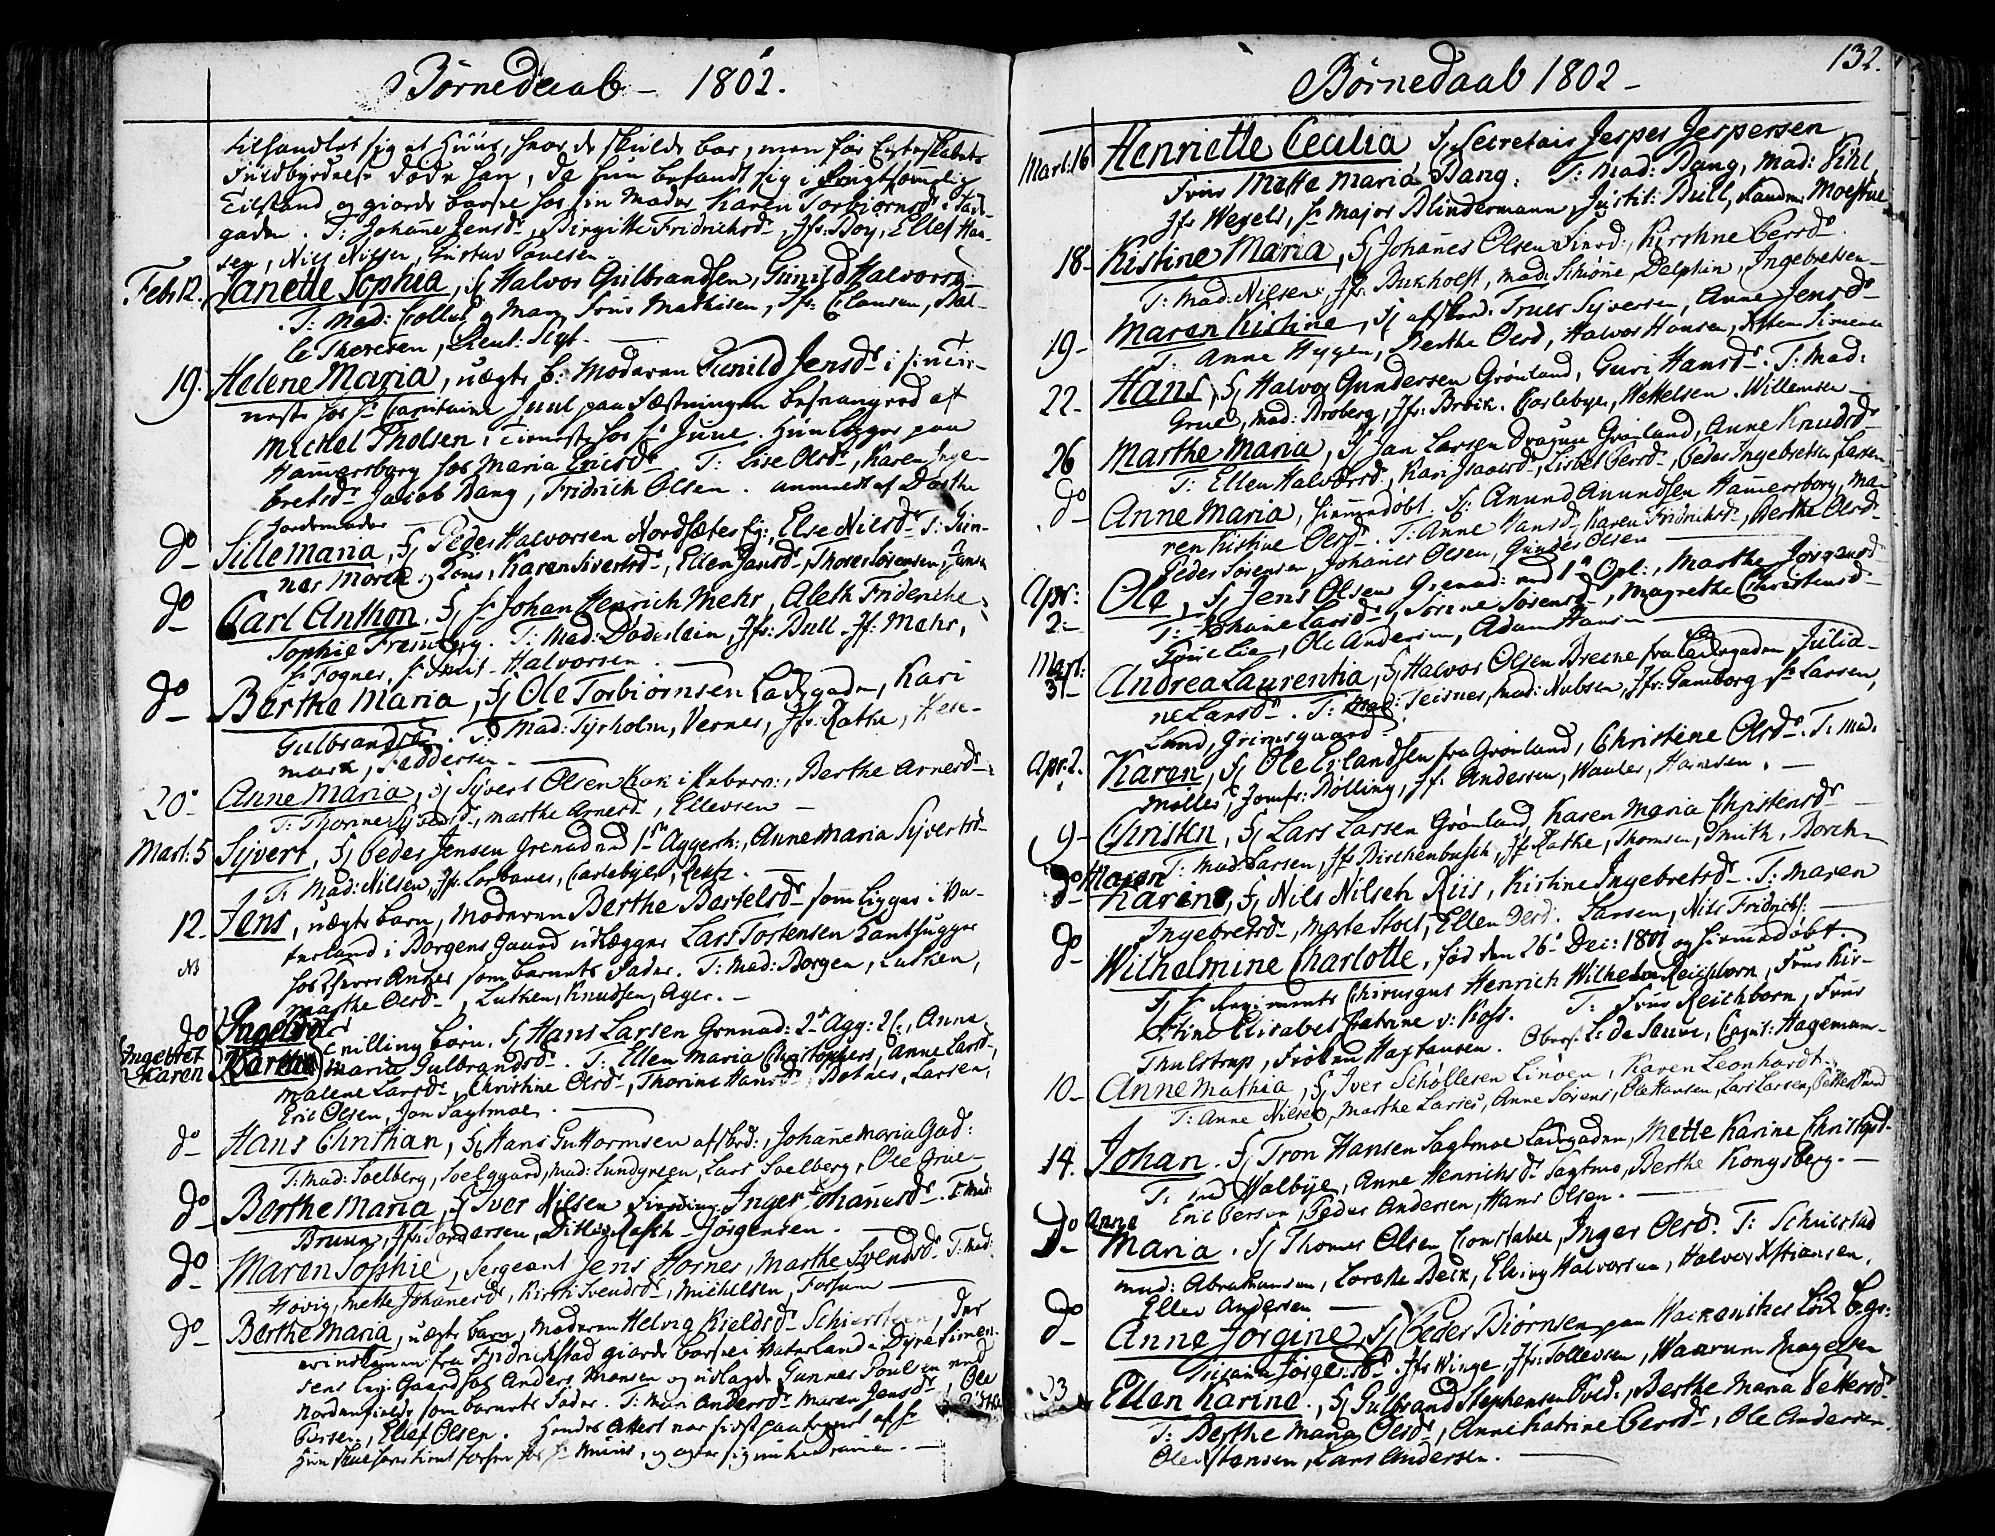 Børnedaab – 1802.
tilhandlet sig et Huus, hvor de skulde boe, men før Egteskabets
Fuldbyrdelse døde han, da hun befandt sig i frugtsommelig
Tilstand og giorde barsel hos sin Moder Karen Torbiørnsd: i Lade-
gaden. T: Johanne Jensd:, Birgitte Fridrichsd:, Jfr: Boy, Ellef Han-
sen, Nils Nilsen, Gustav Poulsen.
Febr: 12. Janette Sophia, F: Halvor Gulbrandsen, Gunild Halvorsd:
T: Mad: Collet og Mam, Frue Mathisen, Jfr: Clausen,
le Theresen, Lieut:
19. Helene Maria, uægte b: Moderen Gunild Jensd: i tie-
neste hos Hr Capitaine Juul paa Fæstningen besvangred af
Michel Tholsen i tieneste hos Hr Juul. Hun ligger paa
Hammersborg hos Maria Ericsd: T: Lise Olsd:, Karen Inge-
bretsd: Jacob Bang, Fridrich Olsen. anmeldt af Dorthe
Jordemoder
do Sille Maria, F: Peder Halvorsen Nordsætes Ej:, Else Nilsd: T: Gun-
nor Moræ, Karen Sivertsd:, Ellen Jansd:, Thorer Sørensen, Jansen
do Carl Anthon, F: Hr Johan Henrich Mehr, Aleth Frideriche
Sophie Fremberg. T: Mad: Døderlein, Jfr: Bull, Jf: Mehr,
Hr Fogner, Hr Smit Halvorsen.
do Berthe Maria, F: Ole Torbiørnsen Ladegaden, Kari
Gulbrandsd: T: Mad: Tyrholm, Vernes, Jfr: Rathe, Hen-
mark, Feddersen.
20. Anne Maria, F: Syvert Olsen Kok i, Berthe Arnesd:
T: Thorine Syversd:, Marthe Arnesd:, Ellevsen
Mart: 5 Syvert, F: Peder Jensen Grenad: ved 1ste Aggersh:, Anne Maria Syvertsd:
T: Mad: Nilsen, Jfr: Lorbauer, Carlebye, Rentz.
12. Jens, uægte barn, Moderen Berthe Bertelsd: som ligger i Va-
terland i Borgens Gaard udlægger Lars Tostensen Kaatsugger
NB hos Peter Anker som barnets Fader. T: Mad: Borgen, Lutken,
Marthe Olsd:, Lutken, Knudsen, Ager.
do Ingebret
Ingebret Karen Karen Tvilling børn. F: Hans Larsen Grenad: 2d Agg: 2C:, Anne
Maria Gulbrandsd: T: Ellen Maria Christophers, Anne Larsd:,
Malene Larsd:, Christine Olsd:, Thorine Hansd:, Botner, Larsen,
Eric Olsen, Jan Sagtmoe.
do Hans Christian, F: Hans Guttormsen afskd:, Johanne Maria Gad:
T: Mad: Soelberg, Soelgaard, Mad: Lundgreen, Lars Soelberg, Ole Grue
do Berthe Maria, F: Iver Nilsen Fierding, Inger Johannesd: T: Mad:
Bruun, Jfr: Tordersen, Ditlev Rasch, Jørgensen.
do Maren Sophie, Sergeant Jens Hornes, Marthe Svendsd: T: Mad:
Høvig, Mette Johannesd:, Kirsti Svendsd:, Michelsen, Forsum
do Berthe Maria, uægte barn, Moderen Helvig Kieldsd: der
er indkommen fra Fridrichstad giorde barsel i Vaterland i Dyre Simen-
sens Leje Gaard hos Anders Monsen og udlagde Gunner Poulsen ved
Nordenfields som barnets Fader. T: Mari Andersd:, Maren Jensd:, Ole
Persen, Ellef Olsen. Hendes attest var sidst paategnet af Hr
Børnedaab 1802 –
132.
Mart: 16 Henriette Cecilia, F: Secretair Jesper Jespersen
Frue Mette Maria Bang. T: Mad: Bang, Mad: Pihl,
Jfr Wegels, Hr Major Blindermann, Justit: Bull, Kandm: Moestue
18 – Kistine Maria, F: Johannes Olsen Fierd:, Kirstine Persd:
T: Mad: Nilsen, Jfr: Bukholst, Mad: Schiøne, Delphin, Ingebretsen
19 – Maren Kistine, F: afskd: Truls Syversen, Anne Jensd:
T: Anne Hygen, Berthe Olsd, Halvor Hansen, Xsten Simensen
22 – Hans, F: Halvor Gundersen Grønland, Guri Hansd: T: Mad:
Grue, Mad: Broberg, Jfr: Broik. Carlebye, Kettelsen. Willumsen
26 Marthe Maria, F: Jan Larsen Dragun Grønland, Anne Knudsd:
T: Ellen Halvorsd:, Kari Isaacsd:, Lisbet Persd:, Peder Ingebretsen, Larsen
do – Anne Maria, hiemmedøbt. F: Amund Amundsen Hamersborg, Ma-
ren Kistine Olsd: T: Anne Hansd:, Karen Fridrichsd:, Berthe Olsd:
Peder Sørensen, Johannes Olsen, Gunder Olsen
Apr: 2 – Ole, F: Jens Olsen Grenad: ved 1ste Opl:, Marthe Jørgensd:
T: Johane Larsd:, Sørine Sørensd:, Magrethe Christensd:
Truels, Ole Andersen, Adam Hansen
Mart: 31 – Andrea Laurentia, F: Halvor Olsen Breene fra Ladegaden, Julia-
ne Larsd: T: Mad: Teisner, Mad: Nubsen, Jfr: Gamborg, Hr Larsen,
Lund, Grimsgaard.
Apr. 2. Karen, F: Ole Erlandsen fra Grønland, Christine Olsd: T: Mad.
Møller, Jomfr: Bølling, Jfr: Andersen, Wauler, Hansen.
9 – Christen, F: Lars Larsen Grønland, Karen Maria Christensd:
T: Mad: Larsen, Jfr Birchenbusch, Jfr Rathe, Thomsen, Smith, Borch
do Maren Karine, F: Nils Nilsen Riis, Kistine Ingebretsd: T: Maren
Ingebretsd:, Myrte Stoel, Ellen Olsd:, Larsen, Nils Fridrichs:
do Wilhelmine Charlotte, fød den 26de Dec: 1801 og hiemmedøbt.
F: Hr Regiments Chirurgus Henrich Wilhelm Reichborn, Frue Kir-
stine Elisabet Catrine v: Koss. T: Frue Reichborn, Frue
Thulstrup, Frøken Haxthausen. Oberst L: de Seuve, Capit: Hageman
10 – Anne Mathia, F: Iver Schøllesen Linøen, Karen Leonhardt.
T: Anne Nilsen, Marthe Larses, Anne Sørens, Ole Hansen, Lars Larsen, Petter
14. Johan. F: Tron Hansen Sagtmoe Ladegaden, Mette Karine Christophd:
T: Mad Walbye, Anne Henrichsd: Sagtmo, Berthe Kongsberg.
Eric Persen, Peder Andersen, Hans Olsen.
do Anne Maria. F: Thomes Olsen Constabel, Inger Olsd: T: Schulstad
Mad: Abrahamsen, Lorethe Beck, Eling Halvorsen, Halvor Xstiansen,
Ellev Andersen
do Anne Jørgine, F: Peder Biørnsen paa Waekenikes Løk beg:
Siriana Jørgensd:. Jfr Winge, Jfr: Tollevsen, Waarum, Magelsen
23 Ellen Karine, F: Gulbrand Stephensen, Berthe Maria Pettersd:
T: Berthe Maria Olsd:, Anne Katrine Persd:, Ole Andersen
Ole Xstensen, Lars Andersen.